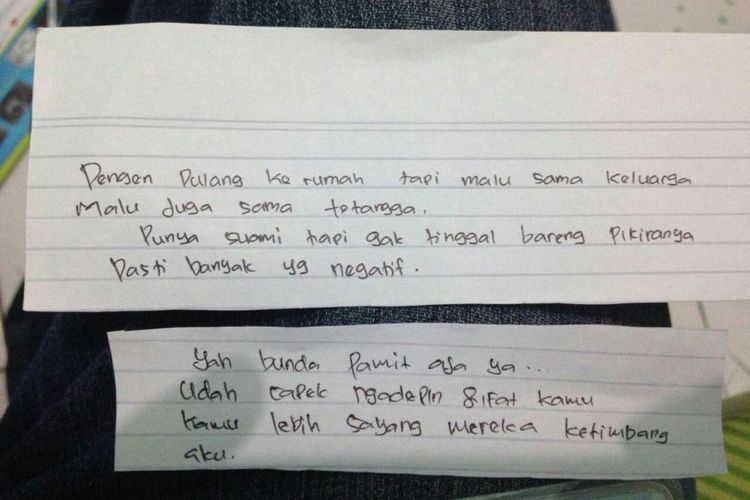 Pengen Pulang ke rumah tapi malu sama keluarga
Malu Juga sama tetangga.
Punya suami tapi gak tinggal bareng Pikiranya
Pasti banyak yg negatif.
Yah bunda Pamit aja ya...
Udah capek ngadepin sifat kamu
kamu lebih sayang mereka ketimbang
aku.